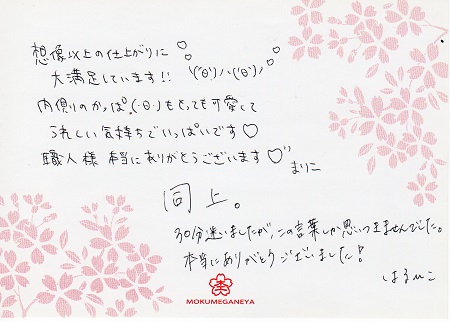 想像以上の仕上がりに♡♡
大満足しています!! \('θ')ハ('θ')/
内側のかっぱ(・θ・)もとっても可愛くて
うれしい気持ちでいっぱいです♡
職人様 本当にありがとうございます♡"
まりこ
同上。
30分迷いましたが、この言葉しか思いつきませんでした。
本当にありがとうございました!
はるひこ
MOKUMEGANEYA